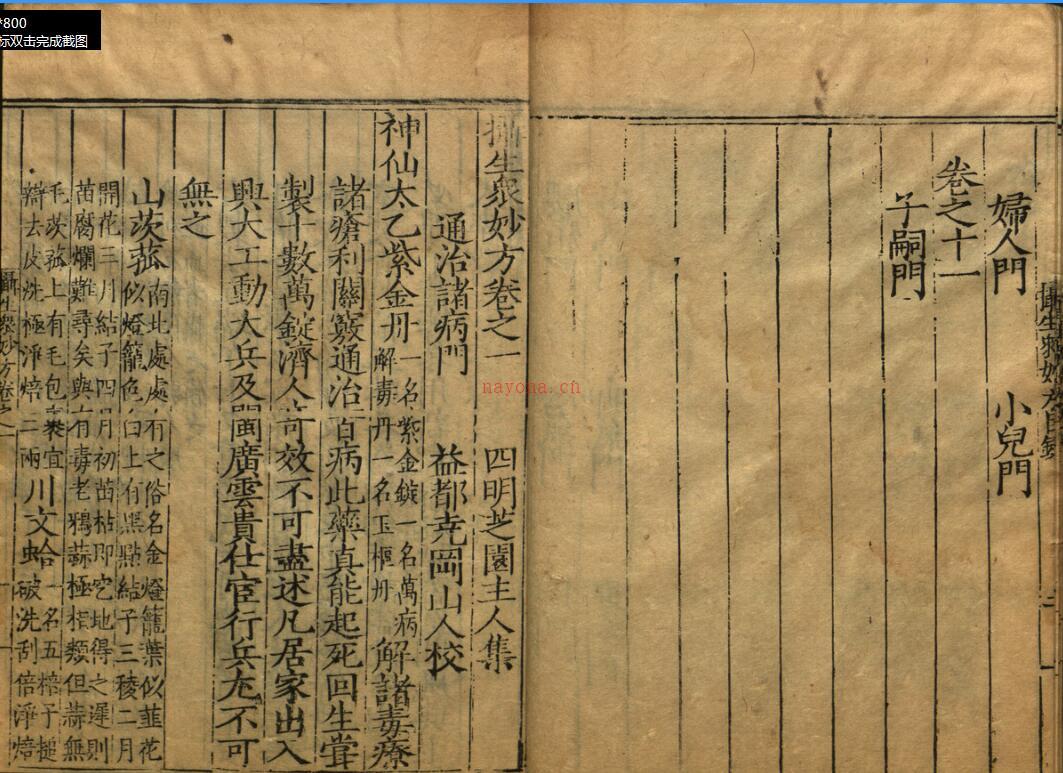 *800
标双击完成截图
婦人門 小兒門
卷之十一
子嗣門
攝生衆妙方卷之一 四明芝園主人集
通治諸病門 益都堯岡山人校
神仙太乙紫金丹 一名紫金錠一名萬病
解毒丹一名玉樞丹 解諸毒療
諸瘡利關竅通治百病此藥真能起死回生甞
製十數萬錠濟人竒效不可盡述凡居家出入
興大工動大兵及閩廣雲貴仕宦行兵尢不可
無之
山茨菰 南北處處有之俗名金燈籠葉似韮花
似燈籠色白上有黑點結子三稜二月
開花三月結子四月初苗枯即空地得之遲則
苗腐爛難尋矣與有毒老鴉蒜極相類但蒜無
毛茨菰上有毛包裹宜
辯去皮洗極淨焙二兩 川文蛤 一名五棓子搥
破洗刮倍淨焙
攝生衆妙方卷之一
nayona.cn